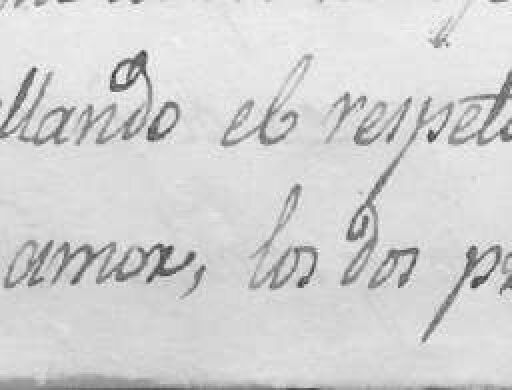 llando el respeto
amor, los dos